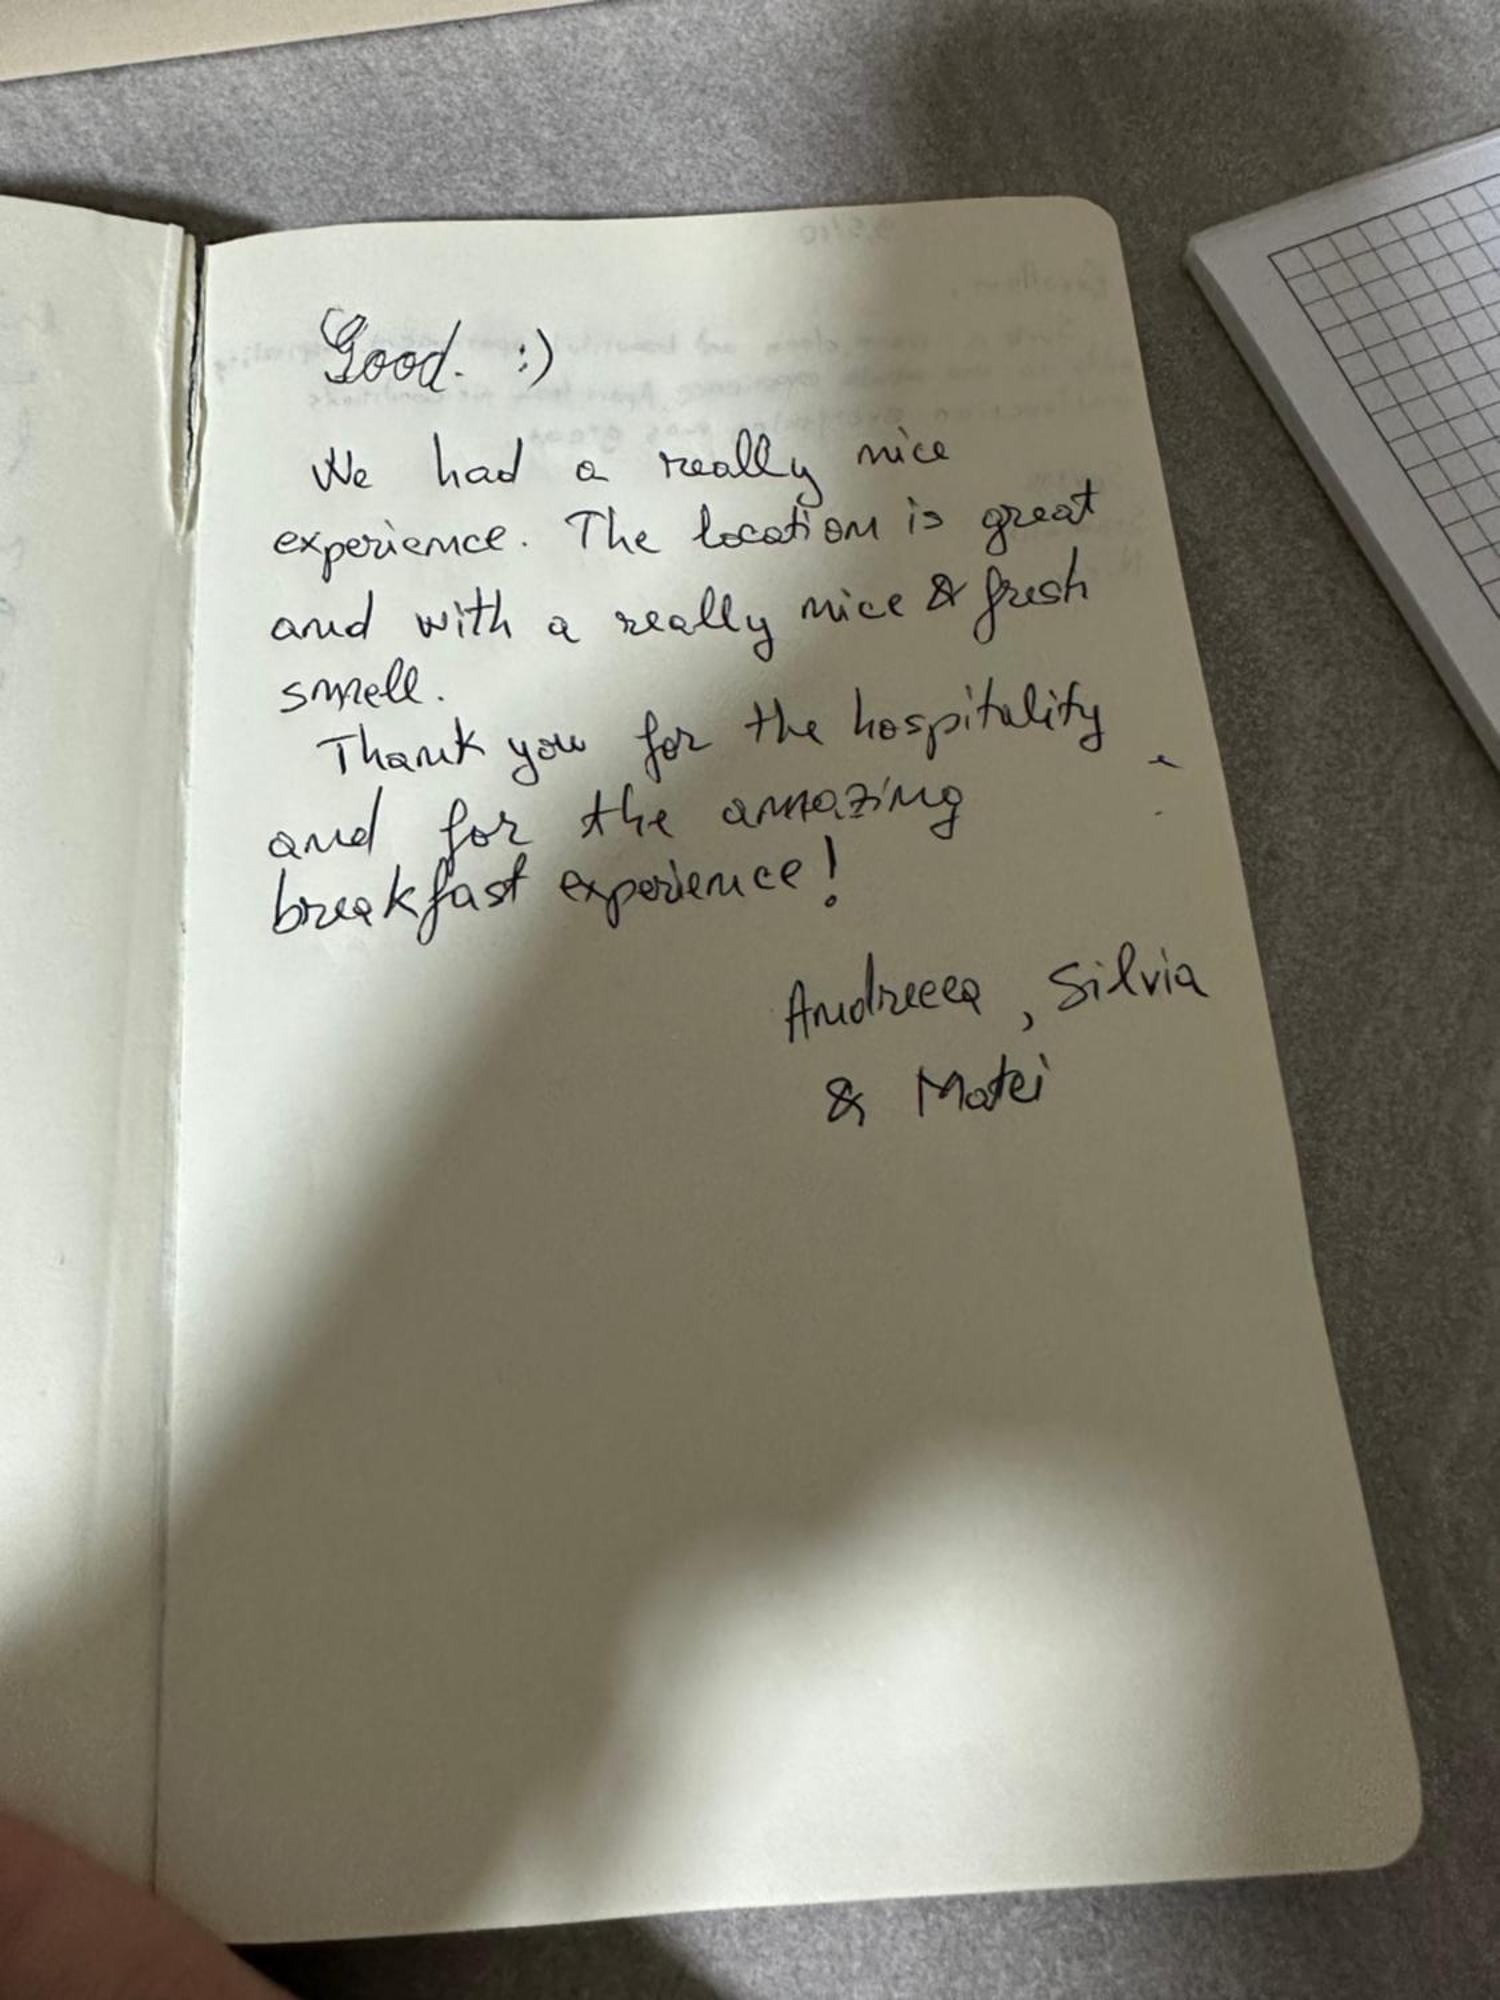 Good. :)
We had a really nice
experience. The location is great
and with a really nice & fresh
smell.
Thank you for the hospitality
and for the amazing
breakfast experience!
Andreea, Silvia
& Matei